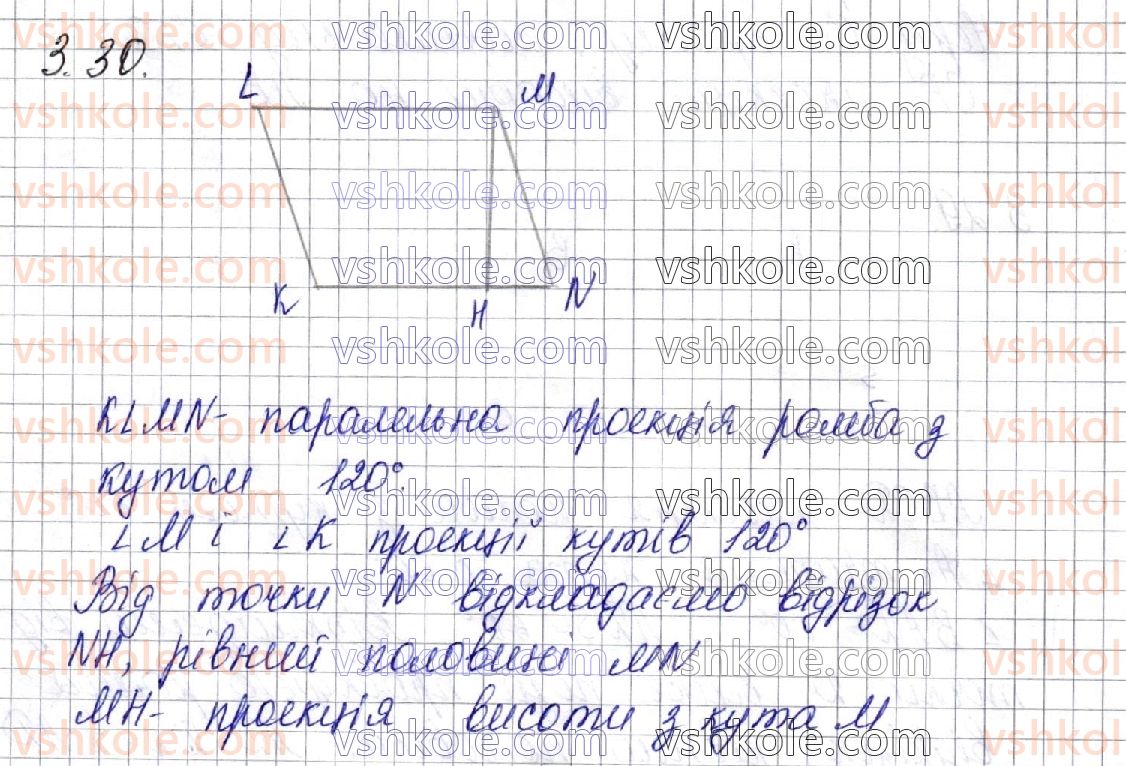 3.30.
L M
K H N
KLMN - паралельна проекція ромба з
кутом 120°.
∠M і ∠K проекції кутів 120°
Від точки N відкладаємо відрізок
NH, рівний половині MN
MH - проекція висоти з кута M
vshkole.com